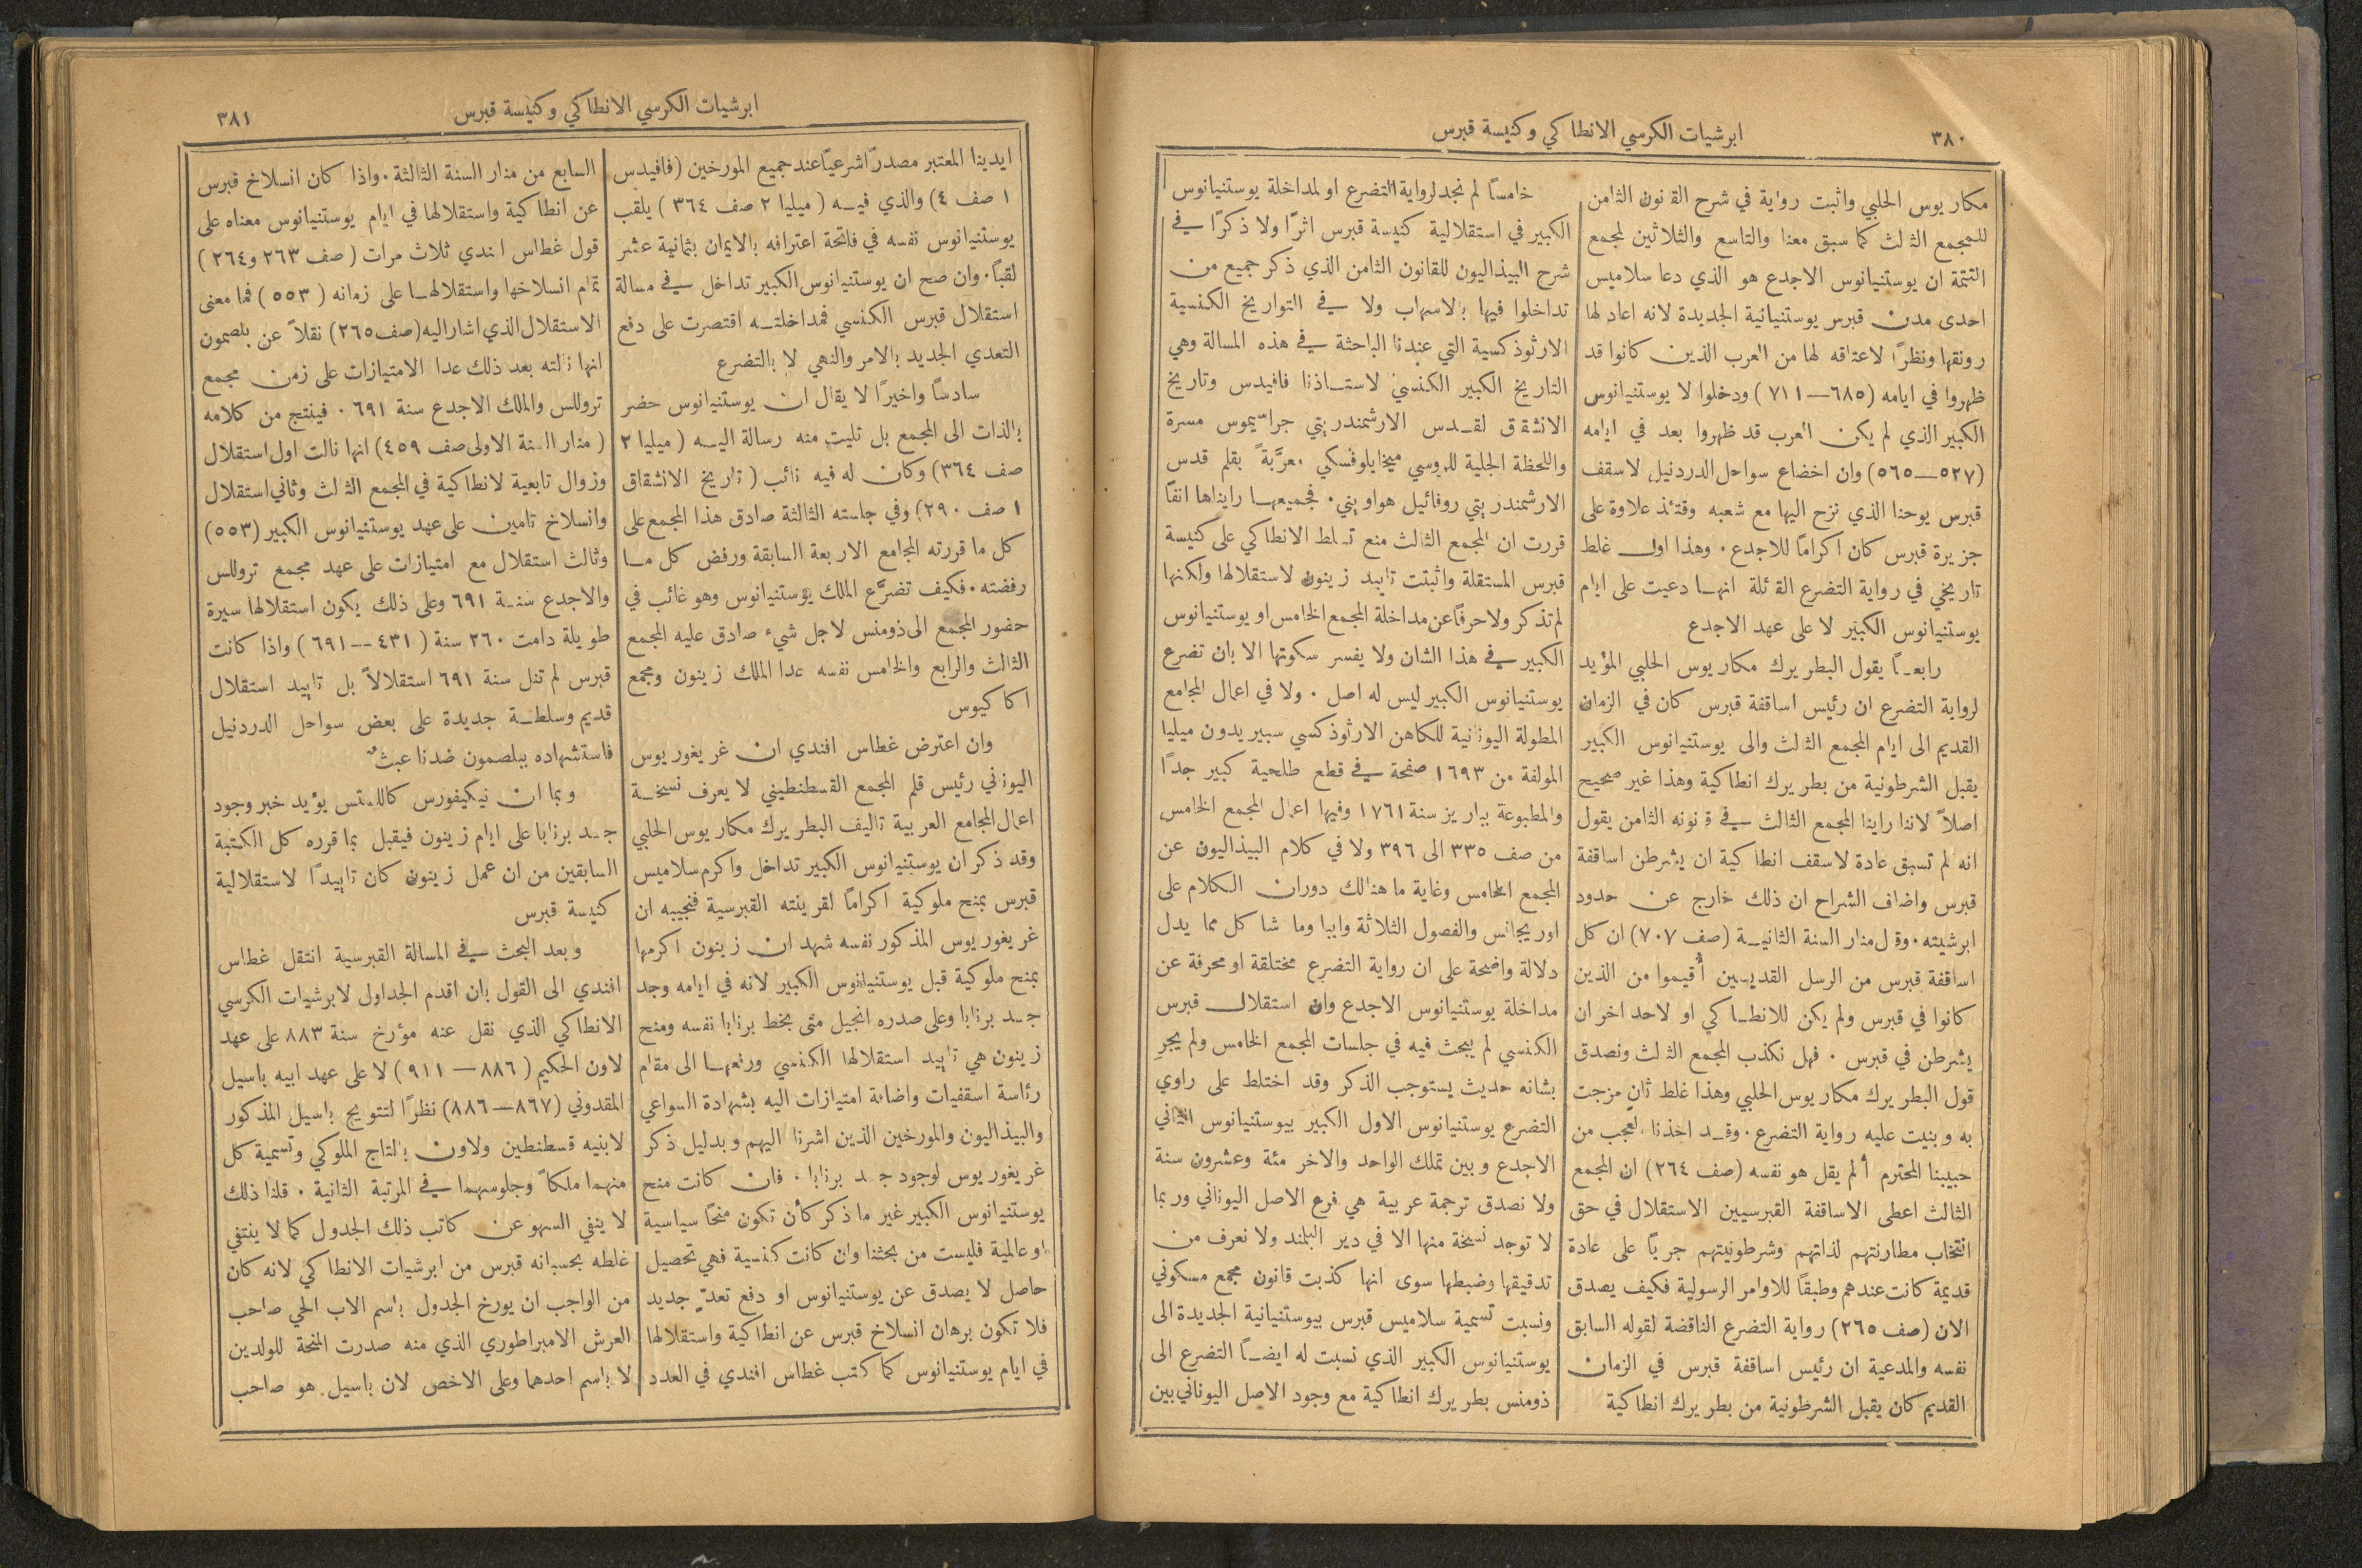 ٣٨٠
ابرشيات الكرسي الانطاكي وكنيسة قبرس
مكاريوس الحلبي واثبت رواية في شرح القانون الثامن
للمجمع الثالث كما سبق معنا والتاسع والثلاثين لمجمع
التتمة ان يوستنيانوس الاجدع هو الذي دعا سلاميس
احدى مدن قبرس يوستنيانية الجديدة لانه اعاد لها
رونقها ونظرًا لاعتاقه لها من العرب الذين كانوا قد
ظهروا في ايامه (٦٨٥—٧١١) ودخلوا لا يوستنيانوس
الكبير الذي لم يكن العرب قد ظهروا بعد في ايامه
(٥٢٧—٥٦٥) وان اخضاع سواحل الدردنيل لاسقف
قبرس يوحنا الذي نزح اليها مع شعبه وقتئذ علاوة على
جزيرة قبرس كان اكرامًا للاجدع. وهذا اول غلط
تاريخي في رواية التضرع القائلة انها دعيت على ايام
يوستنيانوس الكبير لا على عهد الاجدع
رابعًا يقول البطريرك مكاريوس الحلبي المؤيد
لرواية التضرع ان رئيس اساقفة قبرس كان في الزمان
القديم الى ايام المجمع الثالث والى يوستنيانوس الكبير
يقبل الشرطونية من بطريرك انطاكية وهذا غير صحيح
اصلاً لاننا راينا المجمع الثالث في قانونه الثامن يقول
انه لم تسبق عادة لاسقف انطاكية ان يشرطن اساقفة
قبرس واضاف الشراح ان ذلك خارج عن حدود
ابرشيته. وقال منار السنة الثانية (صف ٧٠٧) ان كل
اساقفة قبرس من الرسل القديسين أُقيموا من الذين
كانوا في قبرس ولم يكن للانطاكي او لاحد اخر ان
يشرطن في قبرس. فهل نكذب المجمع الثالث ونصدق
قول البطريرك مكاريوس الحلبي وهذا غلط ثانٍ مزجت
به وبنيت عليه رواية التضرع. وقد اخذنا العجب من
حبيبنا المحترم ألم يقل هو نفسه (صف ٢٦٤) ان المجمع
الثالث اعطى الاساقفة القبرسيين الاستقلال في حق
انتخاب مطارنتهم لذاتهم وشرطونيتهم جريًا على عادة
قديمة كانت عندهم وطبقًا للاوامر الرسولية فكيف يصدق
الان (صف ٢٦٥) رواية التضرع الناقضة لقوله السابق
نفسه والمدعية ان رئيس اساقفة قبرس في الزمان
القديم كان يقبل الشرطونية من بطريرك انطاكية
خامسًا لم نجد لرواية التضرع او لمداخلة يوستنيانوس
الكبير في استقلالية كنيسة قبرس اثرًا ولا ذكرًا في
شرح البيذاليون للقانون الثامن الذي ذكر جميع من
تداخلوا فيها بالاسهاب ولا في التواريخ الكنسية
الارثوذكسية التي عندنا الباحثة في هذه المسالة وهي
التاريخ الكبير الكنسي لاستاذنا فافيدس وتاريخ
الانشقاق لقدس الارشمندريتي جراسيموس مسرة
واللحظة الجلية للروسي ميخايلوفسكي معرَّبةً بقلم قدس
الارشمندريتي روفائيل هواويني. فجميعها رايناها انفًا
قررت ان المجمع الثالث منع تسلط الانطاكي على كنيسة
قبرس المستقلة واثبتت تاييد زينون لاستقلالها ولكنها
لم تذكر ولا حرفًا عن مداخلة المجمع الخامس او يوستنيانوس
الكبير في هذا الشان ولا يفسر سكوتها الا بان تضرع
يوستنيانوس الكبير ليس له اصل. ولا في اعمال المجامع
المطولة اليونانية للكاهن الارثوذكسي سبيريدون ميليا
المولفة من ١٦٩٣ صفحة في قطع طلحية كبير جدًا
والمطبوعة بباريز سنة ١٧٦١ وفيها اعمال المجمع الخامس
من صف ٣٣٥ الى ٣٩٦ ولا في كلام البيذاليون عن
المجمع الخامس وغاية ما هنالك دوران الكلام على
اوريجانس والفصول الثلاثة وايبا وما شاكل مما يدل
دلالة واضحة على ان رواية التضرع مختلقة او محرفة عن
مداخلة يوستنيانوس الاجدع وان استقلال قبرس
الكنسي لم يبحث فيه في جلسات المجمع الخامس ولم يجرِ
بشانه حديث يستوجب الذكر وقد اختلط على راوي
التضرع يوستنيانوس الاول الكبير بيوستنيانوس الثاني
الاجدع وبين تملك الواحد والاخر مئة وعشرون سنة
ولا نصدق ترجمة عربية هي فرع الاصل اليوناني وربما
لا توجد نسخة منها الا في دير البلمند ولا نعرف من
تدقيقها وضبطها سوى انها كذبت قانون مجمع مسكوني
ونسبت تسمية سلاميس قبرس بيوستنيانية الجديدة الى
يوستنيانوس الكبير الذي نسبت له ايضًا التضرع الى
ذومنس بطريرك انطاكية مع وجود الاصل اليوناني بين
ابرشيات الكرسي الانطاكي وكنيسة قبرس
٣٨١
ايدينا المعتبر مصدرًا شرعيًا عند جميع المورخين (فافيدس
١ صف ٤) والذي فيه (ميليا ٢ صف ٣٦٤) يلقب
يوستنيانوس نفسه في فاتحة اعترافه بالايمان بثمانية عشر
لقبًا. وان صح ان يوستنيانوس الكبير تداخل في مسالة
استقلال قبرس الكنسي فمداخلته اقتصرت على دفع
التعدي الجديد بالامر والنهي لا بالتضرع
سادسًا واخيرًا لا يقال ان يوستنيانوس حضر
بالذات الى المجمع بل تليت منه رسالة اليه (ميليا ٢
صف ٣٦٤) وكان له فيه نائب (تاريخ الانشقاق
١ صف ٢٩٠) وفي جلسته الثالثة صادق هذا المجمع على
كل ما قررته المجامع الاربعة السابقة ورفض كل ما
رفضته. فكيف تضرَّع الملك يوستنيانوس وهو غائب في
حضور المجمع الى ذومنس لاجل شيء صادق عليه المجمع
الثالث والرابع والخامس نفسه عدا الملك زينون ومجمع
اكاكيوس
وان اعترض غطاس افندي ان غريغوريوس
اليوناني رئيس قلم المجمع القسطنطيني لا يعرف نسخة
اعمال المجامع العربية تاليف البطريرك مكاريوس الحلبي
وقد ذكر ان يوستنيانوس الكبير تداخل واكرم سلاميس
قبرس بمنح ملوكية اكرامًا لقرينته القبرسية فنجيبه ان
غريغوريوس المذكور نفسه شهد ان زينون اكرمها
بمنح ملوكية قبل يوستنيانوس الكبير لانه في ايامه وجد
جسد برنابا وعلى صدره انجيل متى بخط برنابا نفسه ومنح
زينون هي تاييد استقلالها الكنسي ورفعها الى مقام
رئاسة اسقفيات واضافة امتيازات اليه بشهادة السواعي
والبيذاليون والمورخين الذين اشرنا اليهم وبدليل ذكر
غريغوريوس لوجود جسد برنابا. فان كانت منح
يوستنيانوس الكبير غير ما ذكر كأن تكون منحًا سياسية
او عالمية فليست من بحثنا وان كانت كنسية فهي تحصيل
حاصل لا يصدق عن يوستنيانوس او دفع تعدٍّ جديد
فلا تكون برهان انسلاخ قبرس عن انطاكية واستقلالها
في ايام يوستنيانوس كما كتب غطاس افندي في العدد
السابع من منار السنة الثالثة. واذا كان انسلاخ قبرس
عن انطاكية واستقلالها في ايام يوستنيانوس معناه على
قول غطاس افندي ثلاث مرات (صف ٢٦٣ و٢٦٤)
تمام انسلاخها واستقلالها على زمانه (٥٥٣) فما معنى
الاستقلال الذي اشار اليه (صف ٢٦٥) نقلاً عن بلصمون
انها نالته بعد ذلك عدا الامتيازات على زمن مجمع
تروللس والملك الاجدع سنة ٦٩١. فينتج من كلامه
(منار السنة الاولى صف ٤٥٩) انها نالت اول استقلال
وزوال تابعية لانطاكية في المجمع الثالث وثاني استقلال
وانسلاخ تامين على عهد يوستنيانوس الكبير (٥٥٣)
وثالث استقلال مع امتيازات على عهد مجمع تروللس
والاجدع سنة ٦٩١ وعلى ذلك يكون استقلالها سيرة
طويلة دامت ٢٦٠ سنة (٤٣١--٦٩١) واذا كانت
قبرس لم تنل سنة ٦٩١ استقلالاً بل تاييد استقلال
قديم وسلطة جديدة على بعض سواحل الدردنيل
فاستشهاده ببلصمون ضدنا عبثٌ
وبما ان نيكيفورس كالليستس يؤيد خبر وجود
جسد برنابا على ايام زينون فيقبل بما قرره كل الكتبة
السابقين من ان عمل زينون كان تاييدًا لاستقلالية
كنيسة قبرس
وبعد البحث في المسالة القبرسية انتقل غطاس
افندي الى القول بان اقدم الجداول لابرشيات الكرسي
الانطاكي الذي نقل عنه مؤرخ سنة ٨٨٣ على عهد
لاون الحكيم (٨٨٦—٩١١) لا على عهد ابيه باسيل
المقدوني (٨٦٧—٨٨٦) نظرًا لتتويج باسيل المذكور
لابنيه قسطنطين ولاون بالتاج الملوكي وتسمية كل
منهما ملكًا وجلوسهما في المرتبة الثانية. قلنا ذلك
لا ينفي السهو عن كاتب ذلك الجدول كما لا ينتفي
غلطه بحسبانه قبرس من ابرشيات الانطاكي لانه كان
من الواجب ان يورخ الجدول باسم الاب الحي صاحب
العرش الامبراطوري الذي منه صدرت المنحة للولدين
لا باسم احدهما وعلى الاخص لان باسيل هو صاحب